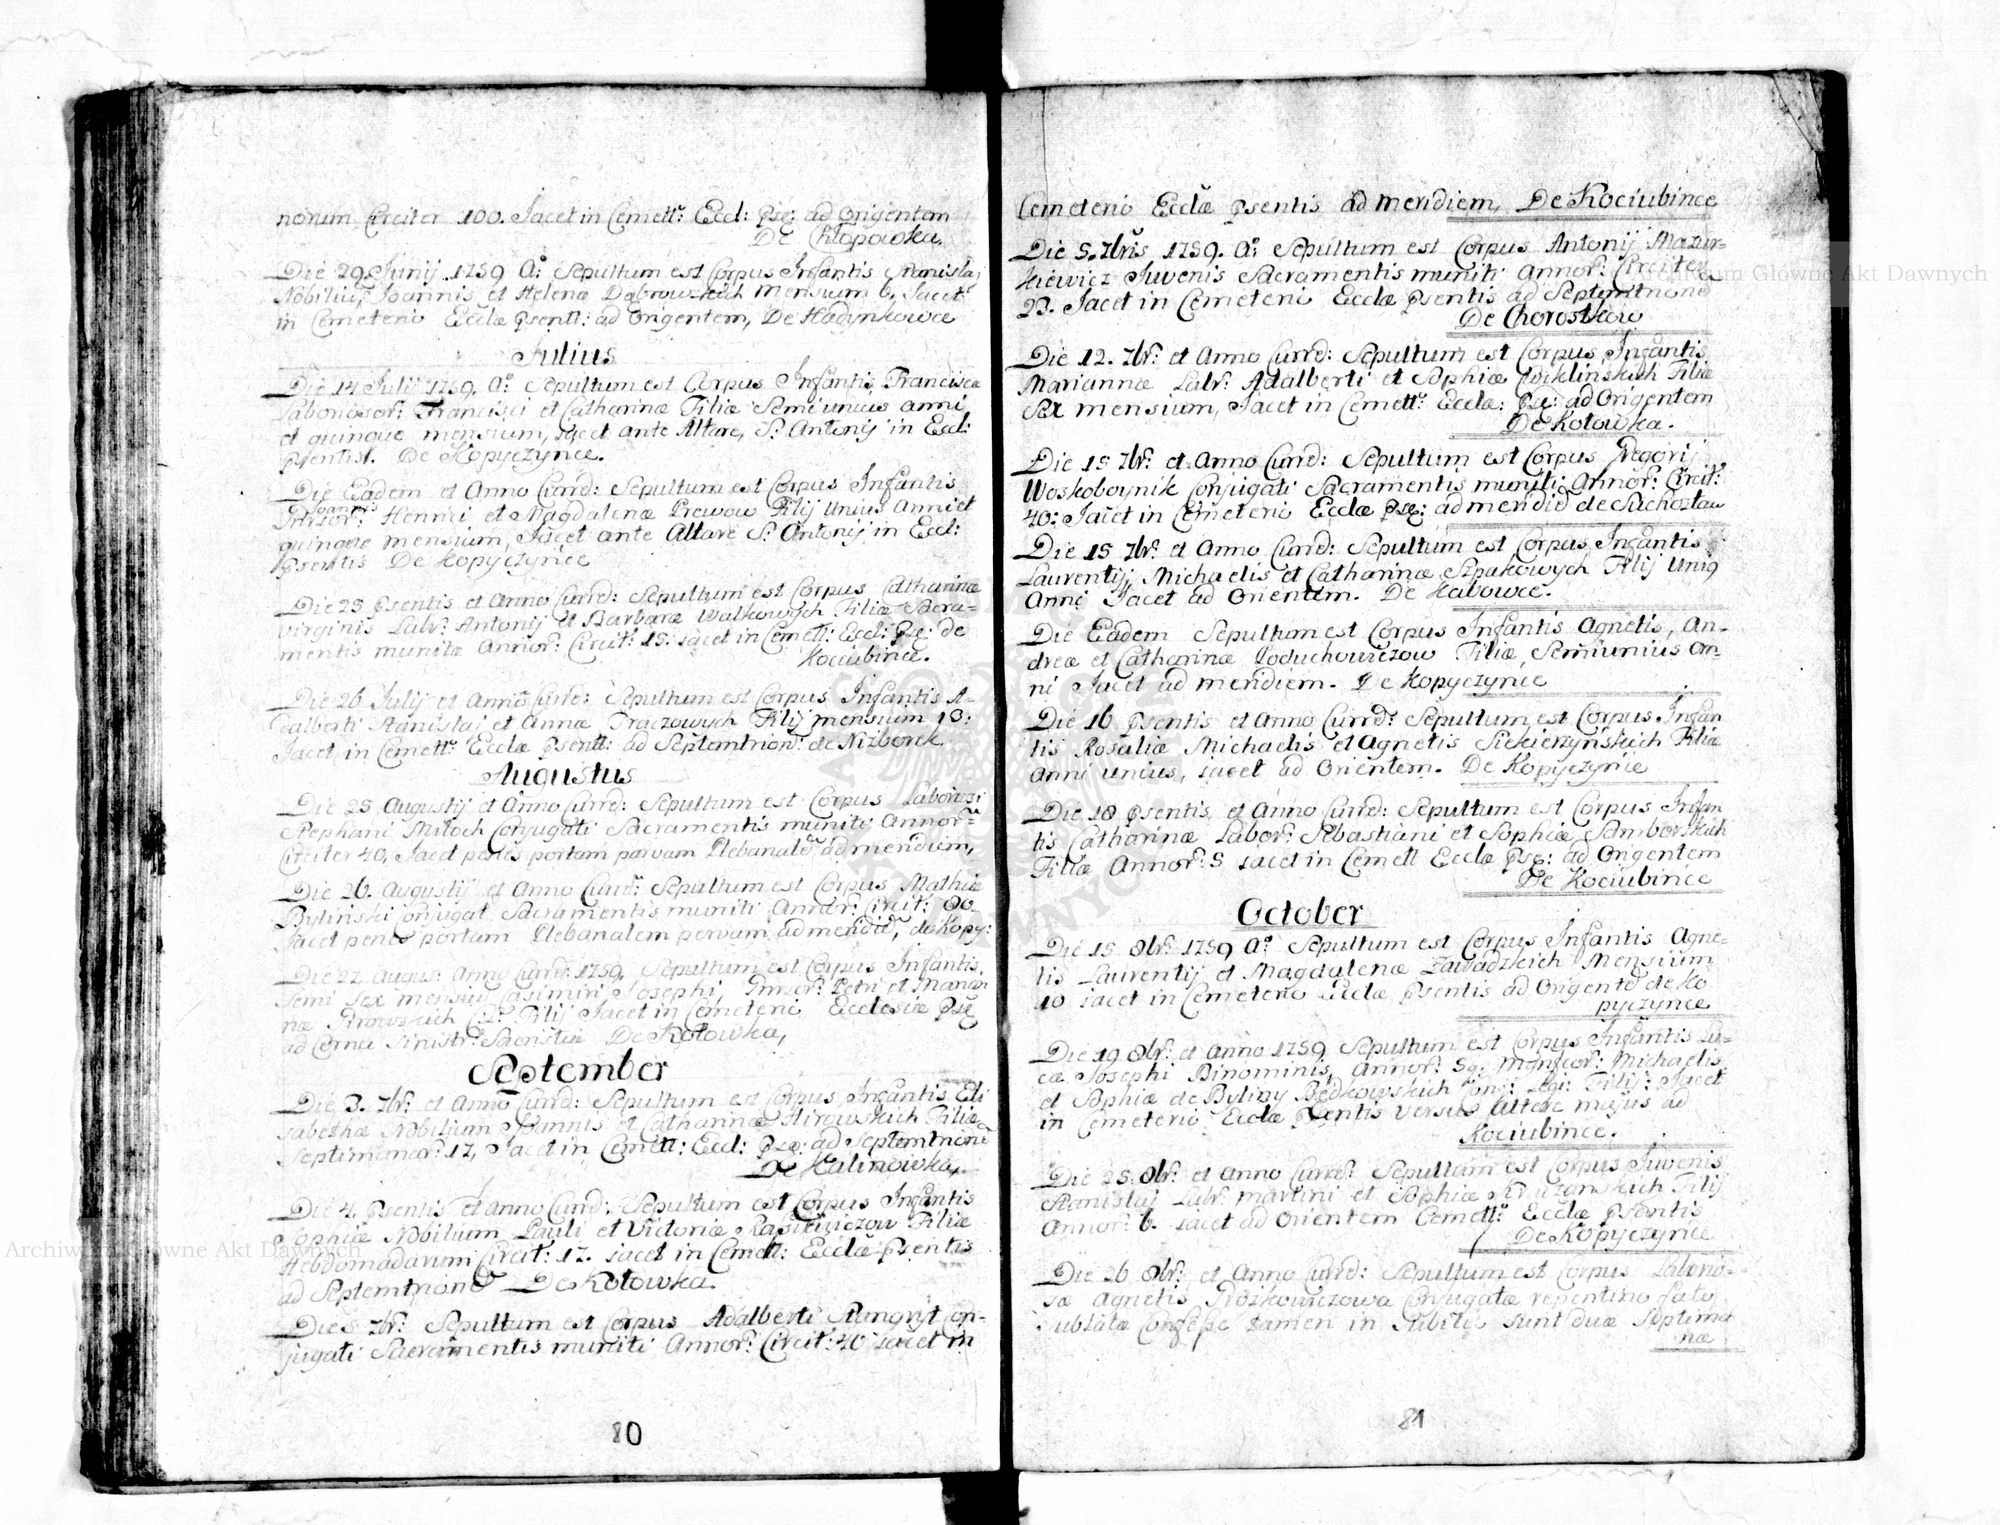 norum Circiter 100. Jacet in Cemett: Eccl: Pse: ad Origentem
De Chłopowka.
Die 29 Junij 1759 Ao Sepultum est Corpus Infantis Stanislaj
Nobiliu, Joannis et Helenæ Dąbrowskich mensium 6. Jacet
in Cemeterio Ecclæ Psentt: ad Origentem, De Hadynkowce
Julius
Die 14 Julij 1759. Ao Sepultum est Corpus Infantis Franciscæ
Laboriosor: Francisci et Catharinæ Filiæ Semiunius anni
et quinque mensium, jacet ante Altare, S. Antonij in Eccl:
psentis. De Kopyczynce.
Die Eadem et Anno Currd: Sepultum est Corpus Infantis
Joannis
Henrici et Magdalenæ Filij Unius Anni et
quinque mensium, Jacet ante Altare S. Antonij in Eccl:
Psentis De Kopyczynce
Die 25 Psentis et Anno Currd: Sepultum est Corpus Catharinæ
virginis Labr: Antonij et Barbaræ Walkowych Filiæ Sacra-
mentis munitæ Annor: Circit: 15: jacet in Cemett: Eccl: Pse: de
Kociubince.
Die 26 Julij et Anno Curre: Sepultum est Corpus Infantis A-
dalberti Stanislaj et Annæ Traczowych Filij mensium 13:
Jacet in Cemett: Ecclæ Psentt: ad Septemtrion: de Nizborek
Augustus
Die 25 Augustij et Anno Currd: Sepultum est Corpus Laboriosi
Stephani Miloch Conjugati Sacramentis muniti, Annor:
Circiter 40, Jacet penes portam parvam Plebanalē ad meridiem,
Die 26. Augustij et Anno Currr: Sepultum est Corpus Mathiæ
Byliński Conjugat Sacramentis muniti Annor: Circit: 80.
Jacet penes portam Plebanalem parvam ad meridiē, de Kopy:
Die 27 August: Anno Currd: 1759, Sepultum est Corpus Infantis
Semi Sex mensiū Casimiri Josephi, Petri et Marian
næ Filij Jacet in Cemeterio Ecclesiæ Pse
ad Sinistr: De Kołowka,
September
Die 3. 7br: et Anno Currd: Sepultum est Corpus Infantis Eli
sabethæ Nobilium Joannis et Catharinæ Filiæ
Septimanar: 17, Jacet in Cemett: Eccl: Pse: ad Septemtrionē
De Kalinowka,
Die 4. Psentis et Anno Currd: Sepultum est Corpus Infantis
Sophiæ Nobilium Pauli et Victoriæ Filiæ
Hebdomadarum Circit: 17. jacet in Cemett: Ecclæ Psentis
ad Septemtrionē De Kołowka.
Die 5 7br: Sepultum est Corpus Adalberti con-
jugati Sacramentis muniti Annor: Circit: 40 jacet in
80
Cemeterio Ecclæ Psentis ad meridiem, De Kociubince
Die 5. 7bris 1759. Ao Sepultum est Corpus Antonij Mazur-
kiewicz Juvenis Sacramentis muniti Annor: Circiter
23. Jacet in Cemeterio Ecclæ Psentis ad Septemtrionē
De Chorostkow
Die 12. 7br: et Anno Currd: Sepultum est Corpus Infantis
Mariannæ Labr: Adalberti et Sophiæ Wiklinskich Filiæ
Sex mensium, Jacet in Cemett: Ecclæ: Pse: ad Origentem
De Kołowka.
Die 15 7br: et Anno Currd: Sepultum est Corpus Gregorij
Woskoboynik Conjugati Sacramentis muniti Annor: Circit:
40: Jacet in Cemeterio Ecclæ Pse: ad meridiē de Suchostaw
Die 15 7br: et Anno Currd: Sepultum est Corpus Infantis
Laurentij, Michaelis et Catharinæ Szpakowych Filij Unig
Anni Jacet ad Orientem. De Kabowce.
Die Eadem Sepultum est Corpus Infantis Agnetis, An-
dreæ et Catharinæ Poduchowiczow Filiæ, Semiunius An-
ni Jacet ad meridiem. De Kopyczynce
Die 16 Psentis et Anno Currd: Sepultum est Corpus Infan
tis Rosaliæ Michaelis et Agnetis Siekierzyńskich Filiæ
Anni unius, jacet ad Orientem. De Kopyczynce
Die 18 Psentis et Anno Currd: Sepultum est Corpus Infan
tis Catharinæ Labor: Sebastiani et Sophiæ Samborskich
Filiæ Annor: 5 jacet in Cemett Ecclæ Pse: ad Origentem
De Kociubince
October
Die 15 8br: 1759 Ao Sepultum est Corpus Infantis Agne-
tis Laurentij et Magdalenæ Zawadzkich Mensium
10 jacet in Cemeterio Ecclæ Psentis ad Origentē de Ko
pyczynce
Die 19 8br: et Anno 1759 Sepultum est Corpus Infantis Lu-
cæ Josephi Binominis, Annor: Michaelis
et Sophiæ de Byliny Będkowskich Conj: Legi: Filij: Jacet
in Cemeterio Ecclæ Psentis versus altare majus ad
Kociubince.
Die 25 8br: et Anno Currr: Sepultum est Corpus Juvenis
Stanislaj Labr: Martini et Sophiæ Filij
Annor: 6. jacet ad Orientem Cemett: Ecclæ Psentis
De Kopyczynce
Die 26 8br: et Anno Currd: Sepultum est Corpus Laborio-
sæ Agnetis Conjugatæ repentino fato
sublatæ Confesse tamen in Jubileo sunt duæ Septima
næ
81
Archiwum Główne Akt Dawnych
Archiwum Główne Akt Dawnych